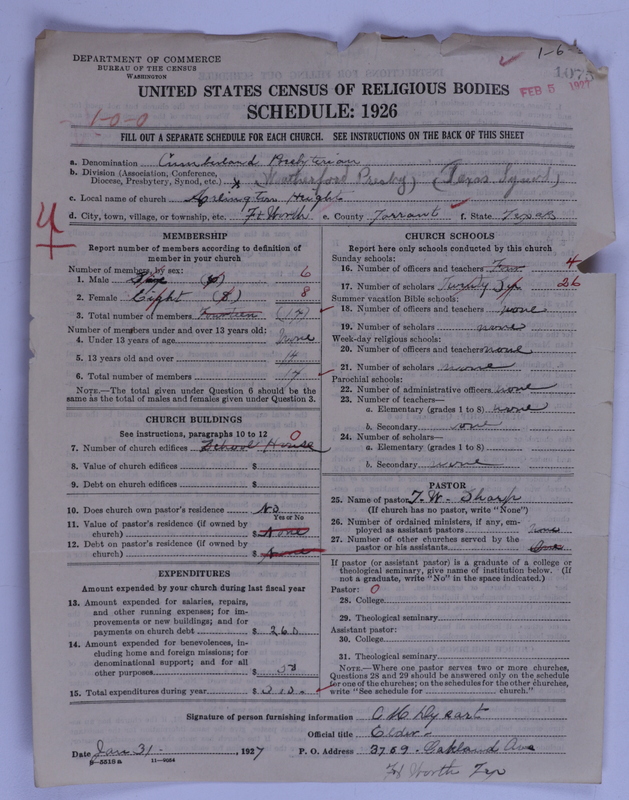 DEPARTMENT OF COMMERCE
BUREAU OF THE CENSUS
WASHINGTON
1-6
1075
FEB 5 1927
UNITED STATES CENSUS OF RELIGIOUS BODIES
SCHEDULE: 1926
1-0-0
FILL OUT A SEPARATE SCHEDULE FOR EACH CHURCH. SEE INSTRUCTIONS ON THE BACK OF THIS SHEET
a. Denomination Cumberland Presbyterian
b. Division (Association, Conference, Diocese, Presbytery, Synod, etc.) x (Weatherford Presby) (Texas Synod)
c. Local name of church Arlington Heights
d. City, town, village, or township, etc. Ft Worth e. County Tarrant f. State Texas
MEMBERSHIP
Report number of members according to definition of
member in your church
Number of members by sex:
1. Male Six (6) 6
2. Female Eight (8) 8
3. Total number of members Fourteen (14)
Number of members under and over 13 years old:
4. Under 13 years of age None
5. 13 years old and over 14
6. Total number of members 14
NOTE.—The total given under Question 6 should be the
same as the total of males and females given under Question 3.
CHURCH BUILDINGS
See instructions, paragraphs 10 to 12
7. Number of church edifices School House 0
8. Value of church edifices $
9. Debt on church edifices $
10. Does church own pastor's residence No
Yes or No
11. Value of pastor's residence (if owned by
church) $ None
12. Debt on pastor's residence (if owned by
church) $ None
EXPENDITURES
Amount expended by your church during last fiscal year
13. Amount expended for salaries, repairs,
and other running expenses; for im-
provements or new buildings; and for
payments on church debt $ 260
14. Amount expended for benevolences, in-
cluding home and foreign missions; for
denominational support; and for all
other purposes $
15. Total expenditures during year $
CHURCH SCHOOLS
Report here only schools conducted by this church
Sunday schools:
16. Number of officers and teachers Four 4
17. Number of scholars Twenty Six 26
Summer vacation Bible schools:
18. Number of officers and teachers none
19. Number of scholars none
Week-day religious schools:
20. Number of officers and teachers none
21. Number of scholars none
Parochial schools:
22. Number of administrative officers none
23. Number of teachers—
a. Elementary (grades 1 to 8) none
b. Secondary none
24. Number of scholars—
a. Elementary (grades 1 to 8)
b. Secondary none
PASTOR
25. Name of pastor T. W. Sharp
(If church has no pastor, write "None")
26. Number of ordained ministers, if any, em-
ployed as assistant pastors none
27. Number of other churches served by the
pastor or his assistants
If pastor (or assistant pastor) is a graduate of a college or
theological seminary, give name of institution below. (If
not a graduate, write "No" in the space indicated.)
Pastor: 0
28. College
29. Theological seminary
Assistant pastor:
30. College
31. Theological seminary
NOTE.—Where one pastor serves two or more churches,
Questions 28 and 29 should be answered only on the schedule
for one of the churches; on the schedules for the other churches,
write "See schedule for church."
Signature of person furnishing information C H Dysart
Official title Elder
Date Jan 31 , 1927 P. O. Address 3709 Oakland Ave
8-5518a 11-9054
Ft Worth Tex